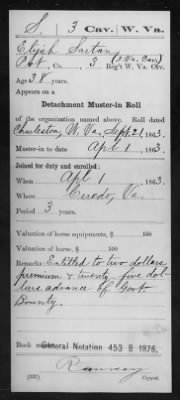 S. 3 Cav. W. Va.
Elijah Sartan
Pvt., Co. 3 (3 Va. Cav.) Reg't W. Va. Cav.
Age 38 years.
Appears on a
Detachment Muster-in Roll
of the organization named above. Roll dated
Charleston, W. Va., Sept. 21, 1863.
Muster-in to date Apl 1, 1863.
Joined for duty and enrolled:
When Apl 1, 1863.
Where Ceredo, Va.
Period 3 years.
Valuation of horse equipments, $ 100
Valuation of horse, $ 100
Remarks: Entitled to two dollars
premium & twenty-five dol-
lars advance of Govt.
Bounty.
Book mark: General Notation 453 B 1876.
Ramsey
(337) Copyist.